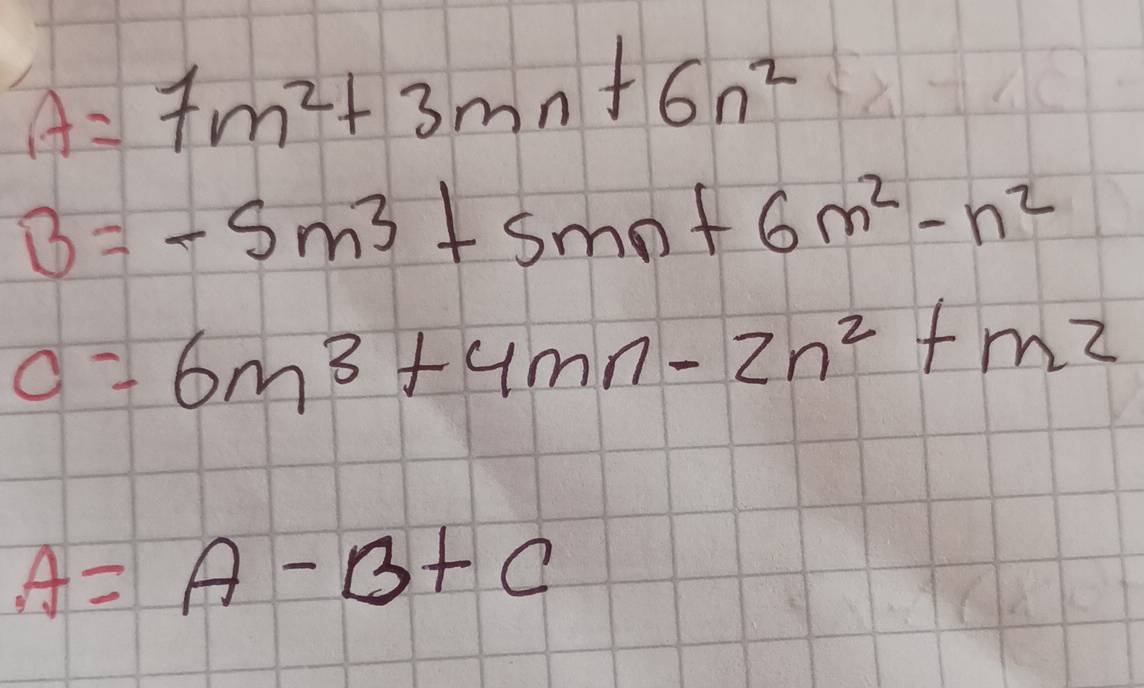 A = 7m² + 3mn + 6n²
B = -5m³ + 5mn + 6m² - n²
C = 6m³ + 4mn - 2n² + m²
A = A - B + C